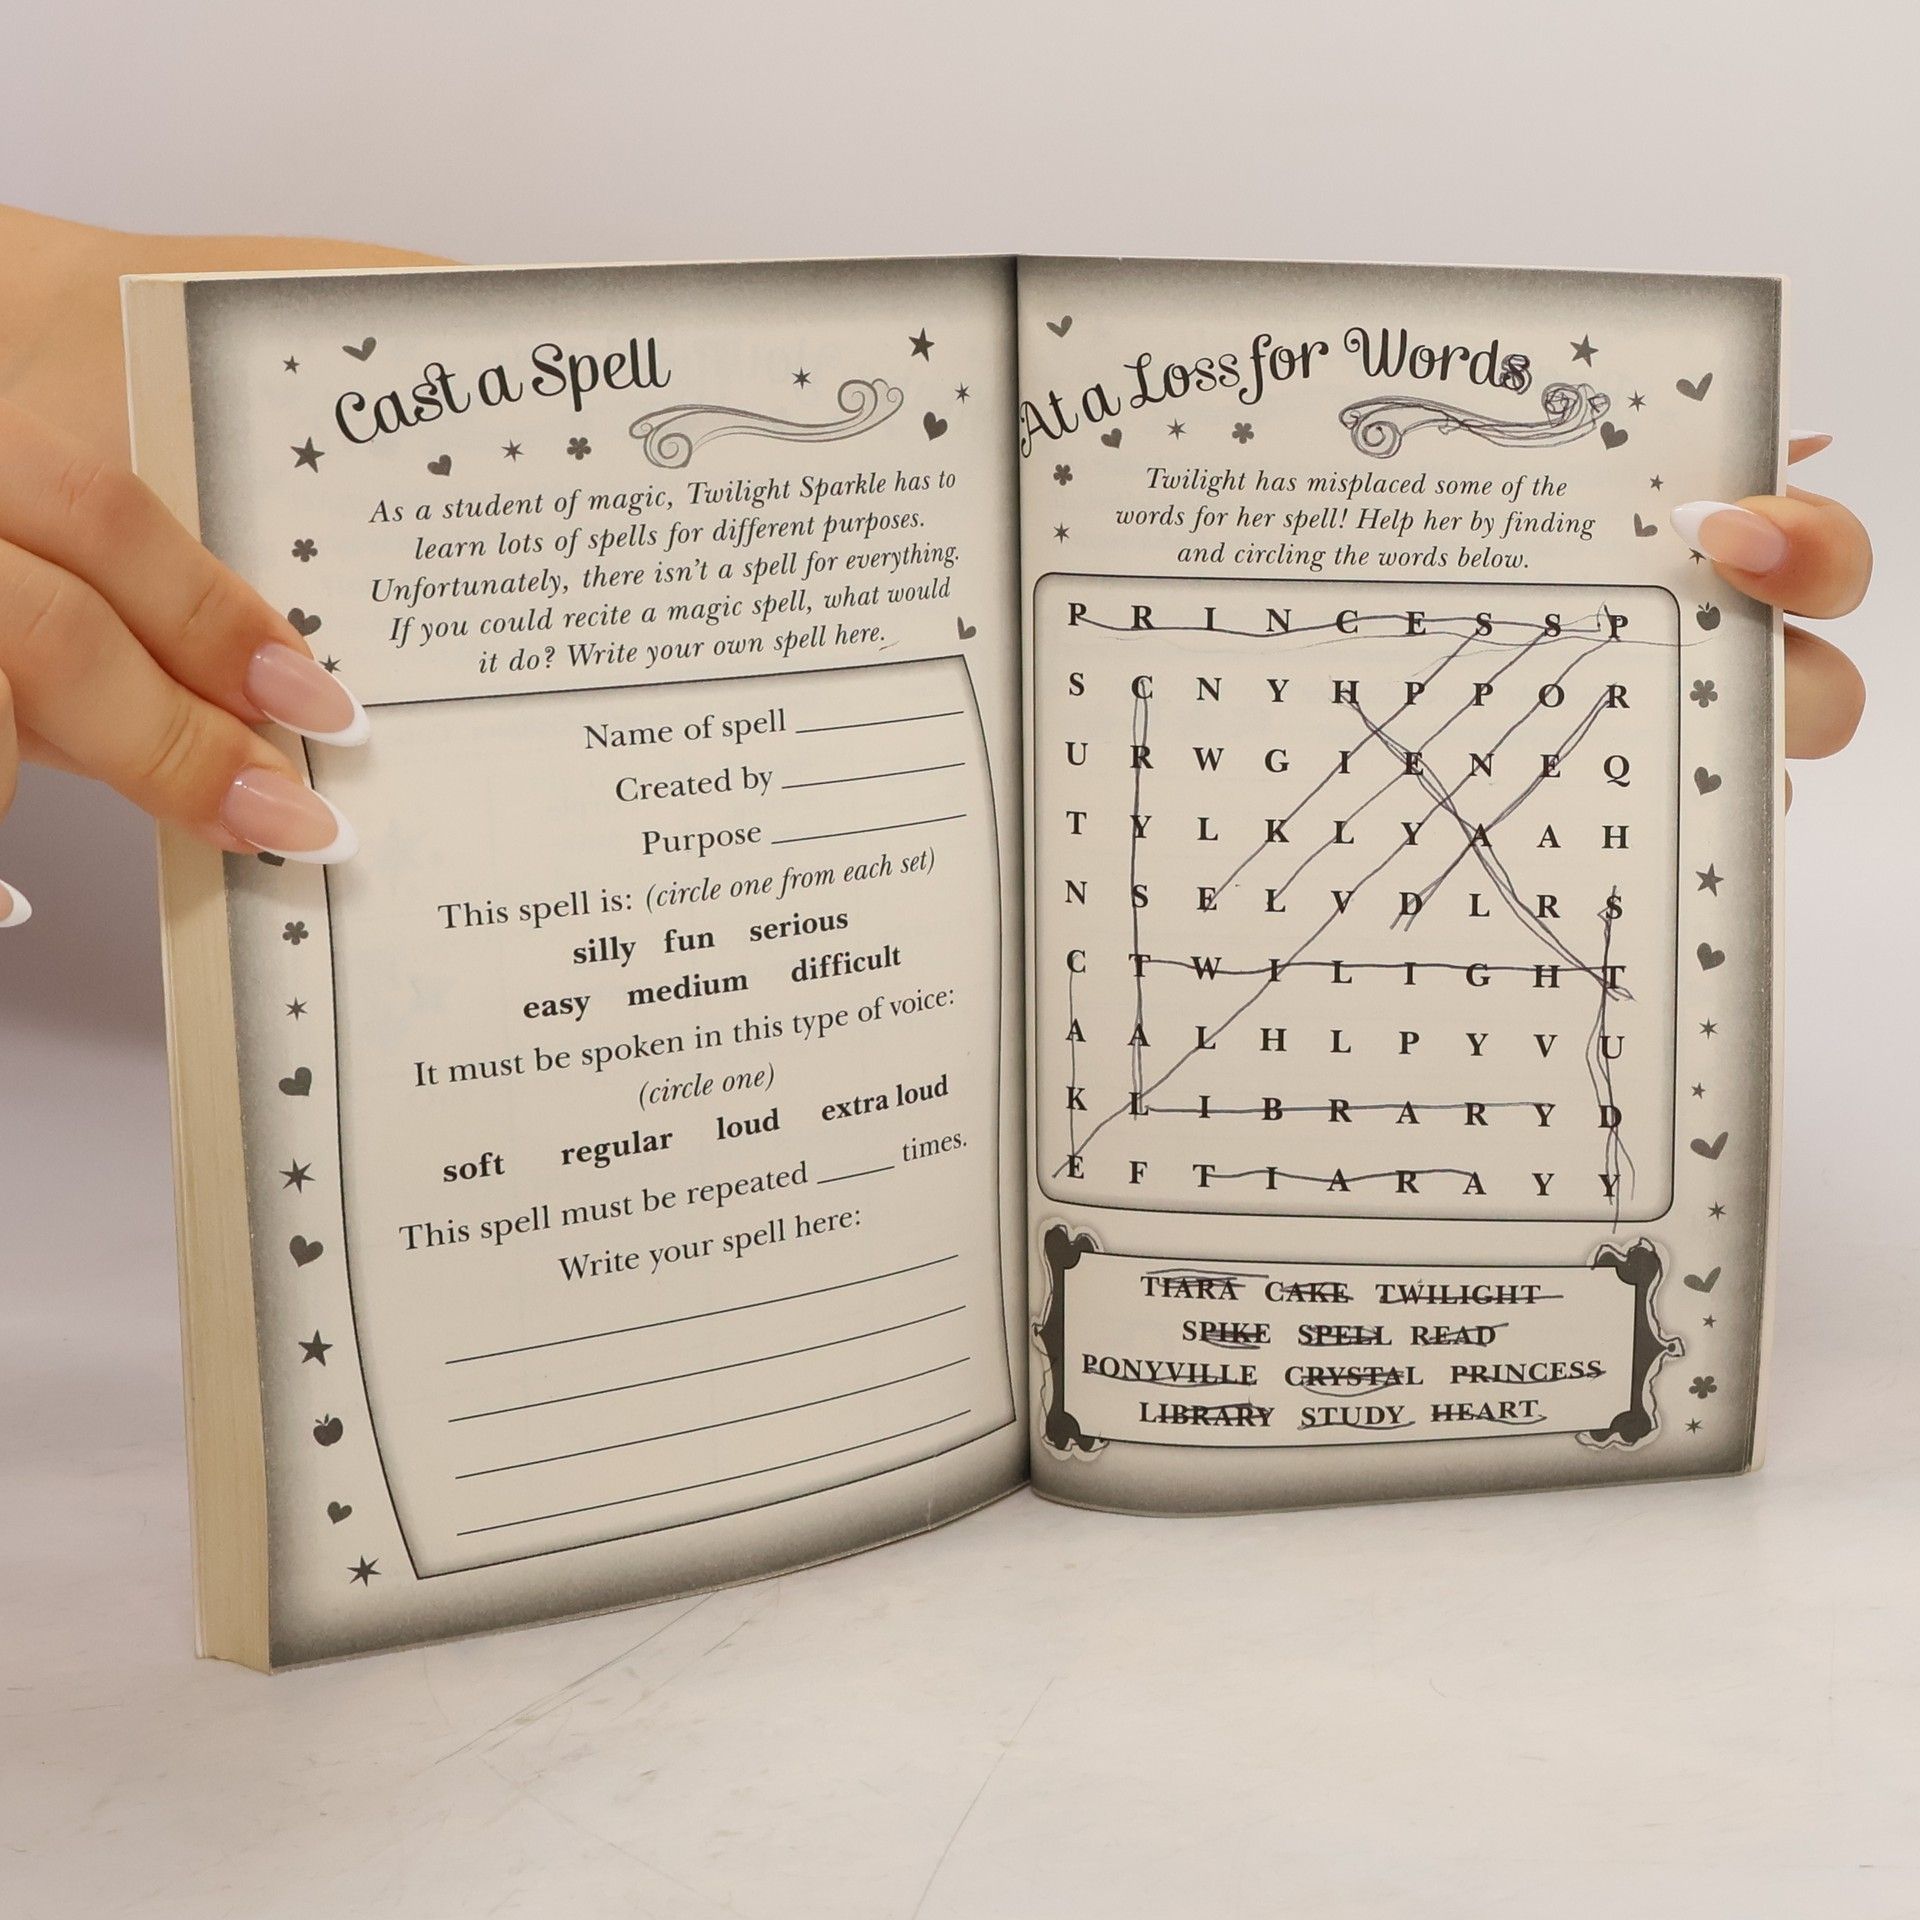 Cast a Spell
As a student of magic, Twilight Sparkle has to
learn lots of spells for different purposes.
Unfortunately, there isn't a spell for everything.
If you could recite a magic spell, what would
it do? Write your own spell here.
Name of spell
Created by
Purpose
This spell is: (circle one from each set)
silly fun serious
easy medium difficult
It must be spoken in this type of voice:
(circle one)
soft regular loud extra loud
This spell must be repeated _____ times.
Write your spell here:
At a Loss for Words
Twilight has misplaced some of the
words for her spell! Help her by finding
and circling the words below.
P R I N C E S S P
S C N Y H P P O R
U R W G I E N E Q
T Y L K L Y A A H
N S E L V D L R S
C T W I L I G H T
A A L H L P Y V U
K L I B R A R Y D
E F T I A R A Y Y
TIARA CAKE TWILIGHT
SPIKE SPELL READ
PONYVILLE CRYSTAL PRINCESS
LIBRARY STUDY HEART